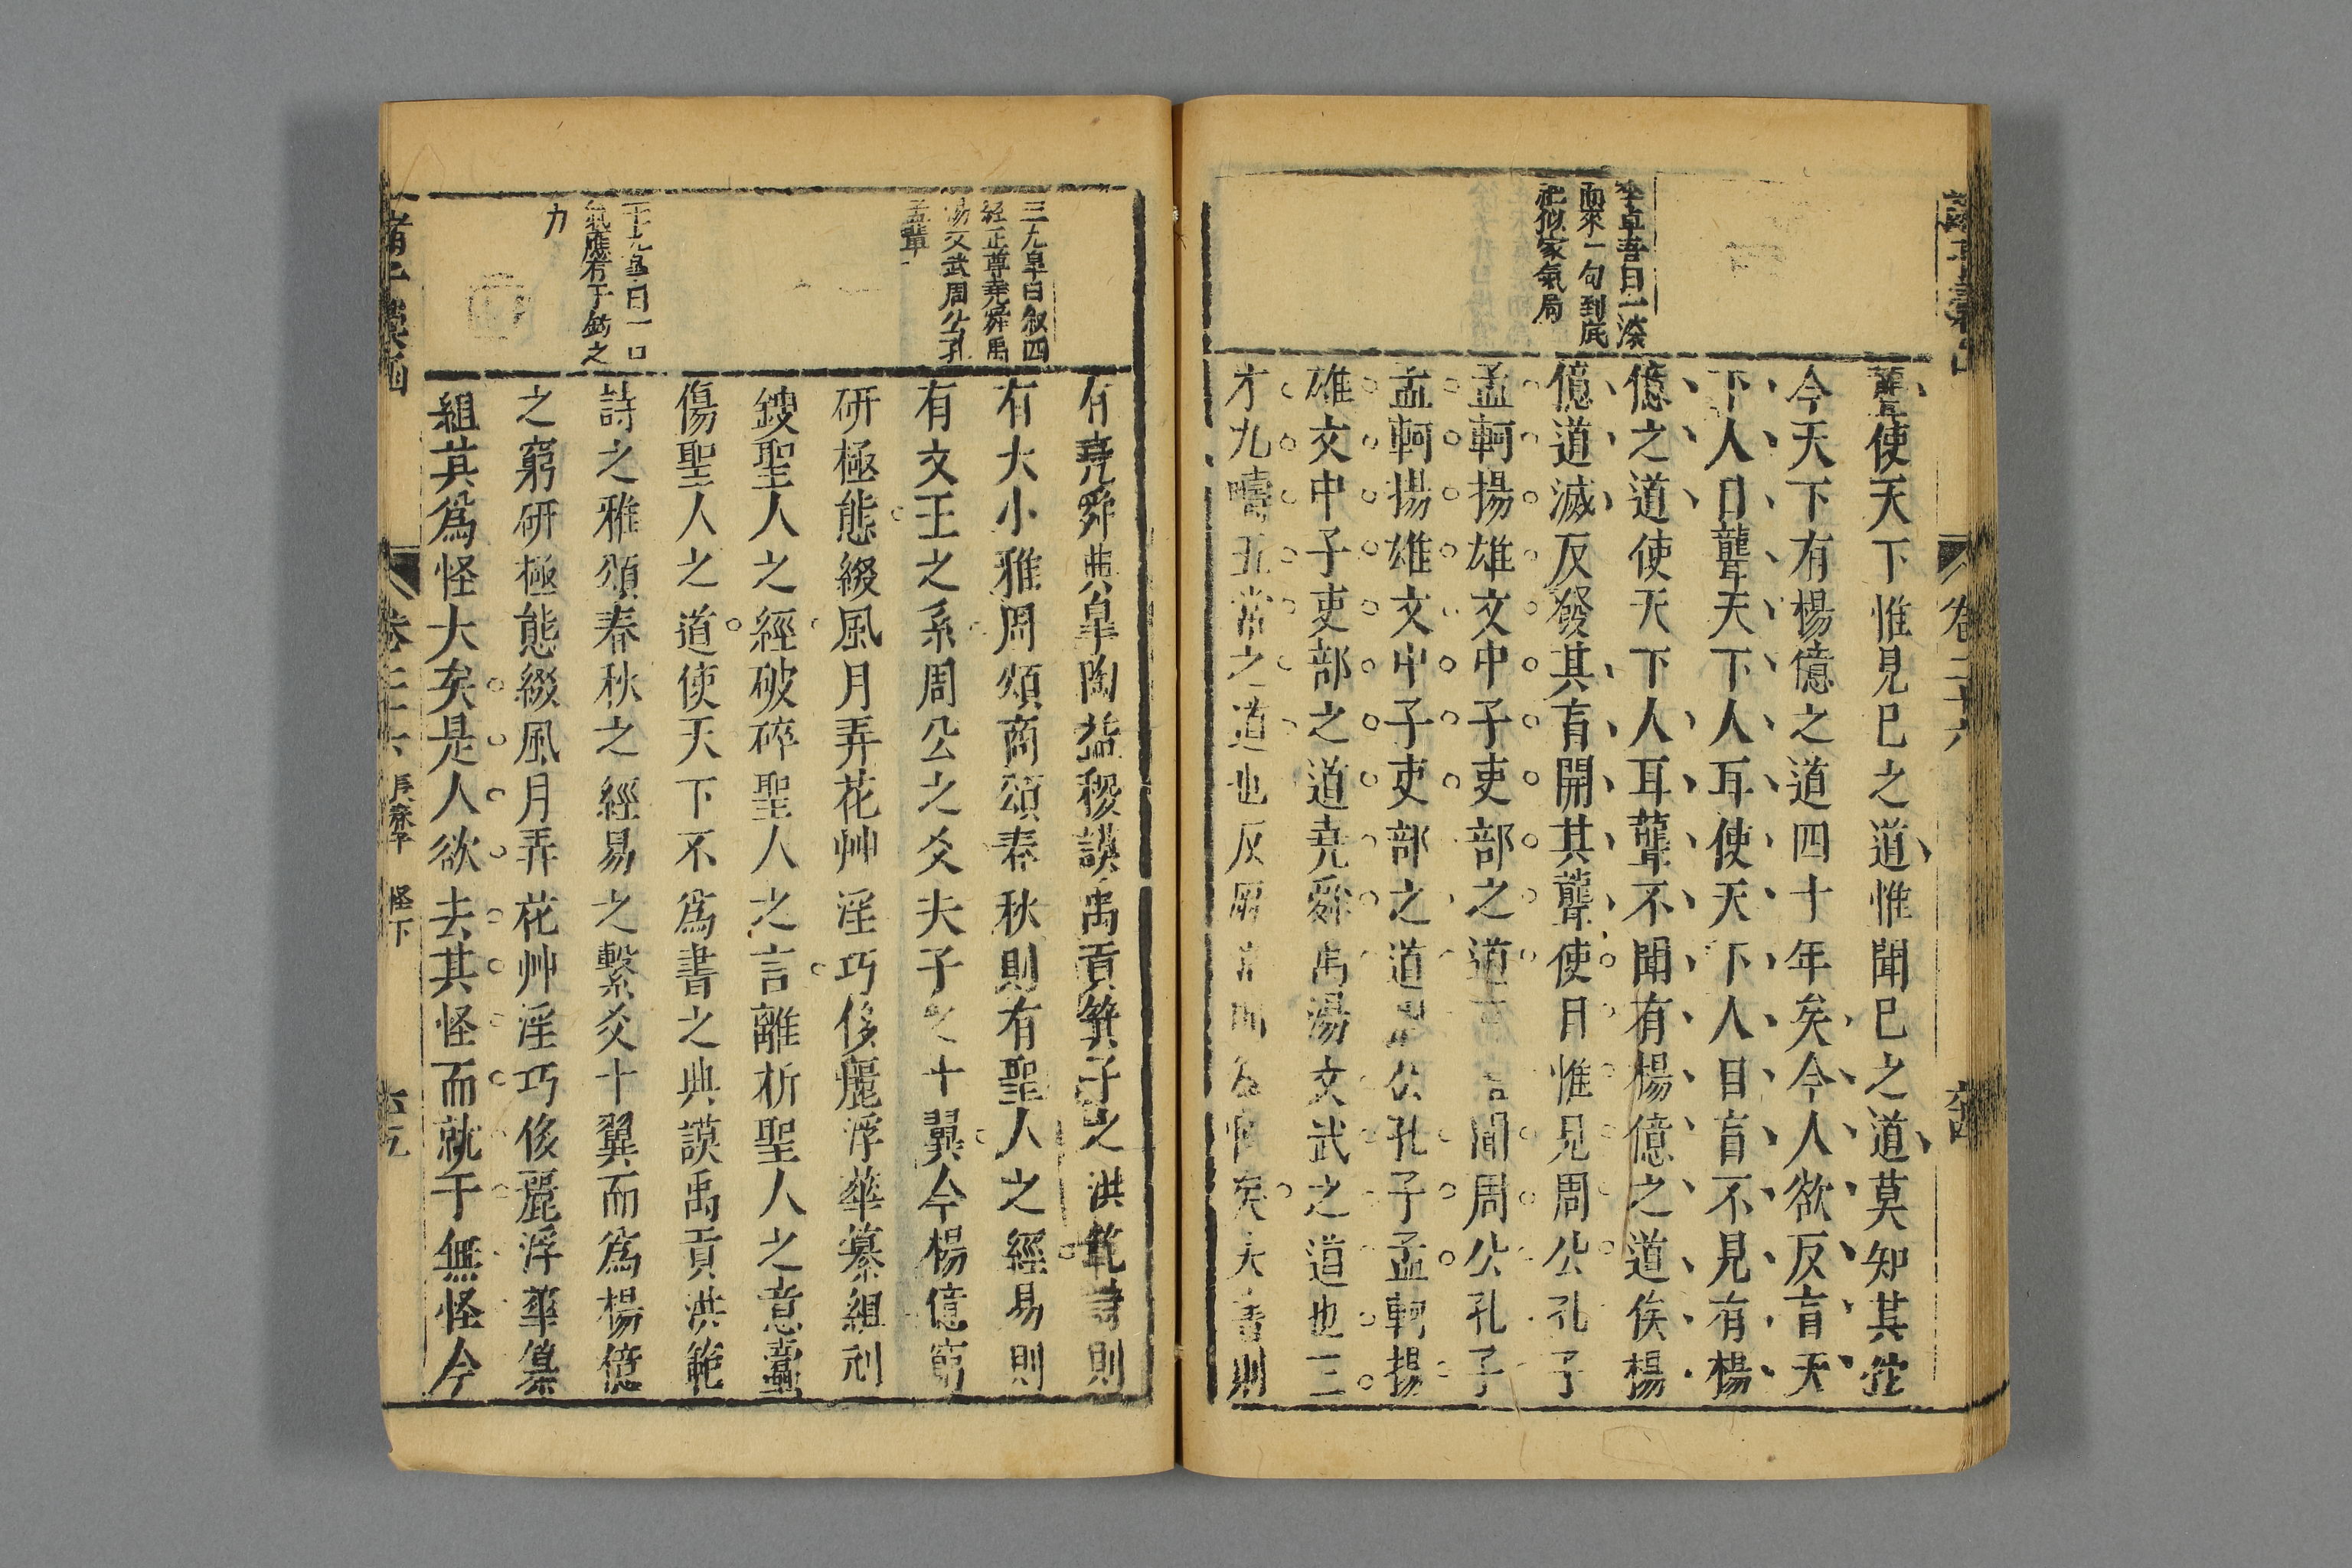 李卓吾曰一滚
而來一句到底
聾使天下惟見巳之道惟聞巳之道莫知其他
今天下有楊億之道四十年矣今人欲反盲天
下人目聾天下人耳使天下人目盲不見有楊
億之道使天下人耳聾不聞有楊億之道俟楊
億道滅反發其盲開其聾使目惟見周公孔子
孟軻揚雄文中子吏部之道耳惟聞周公孔子
孟軻揚雄文中子吏部之道周公孔子孟軻揚
雄文中子吏部之道堯舜禹湯文武之道也三
才九疇五常之道也反厥常則為怪矣夫書則
三九皐曰叙四
經正尊堯舜禹
湯文武周公孔
孟輩
曰一口
氣應有千鈞之
力
有堯舜典皐陶益稷謨禹貢箕子之洪範詩則
有大小雅周頌商頌春秋則有聖人之經易則
有文王之系周公之爻夫子之十翼今楊億窮
研極態綴風月弄花艸淫巧侈麗浮華纂組刓
鎪聖人之經破碎聖人之言離析聖人之意蠧
傷聖人之道使天下不爲書之典謨禹貢洪範
詩之雅頌春秋之經易之繫爻十翼而爲楊億
之窮研極態綴風月弄花艸淫巧侈麗浮華纂
組其爲怪大矣是人欲去其怪而就于無怪今
怪下